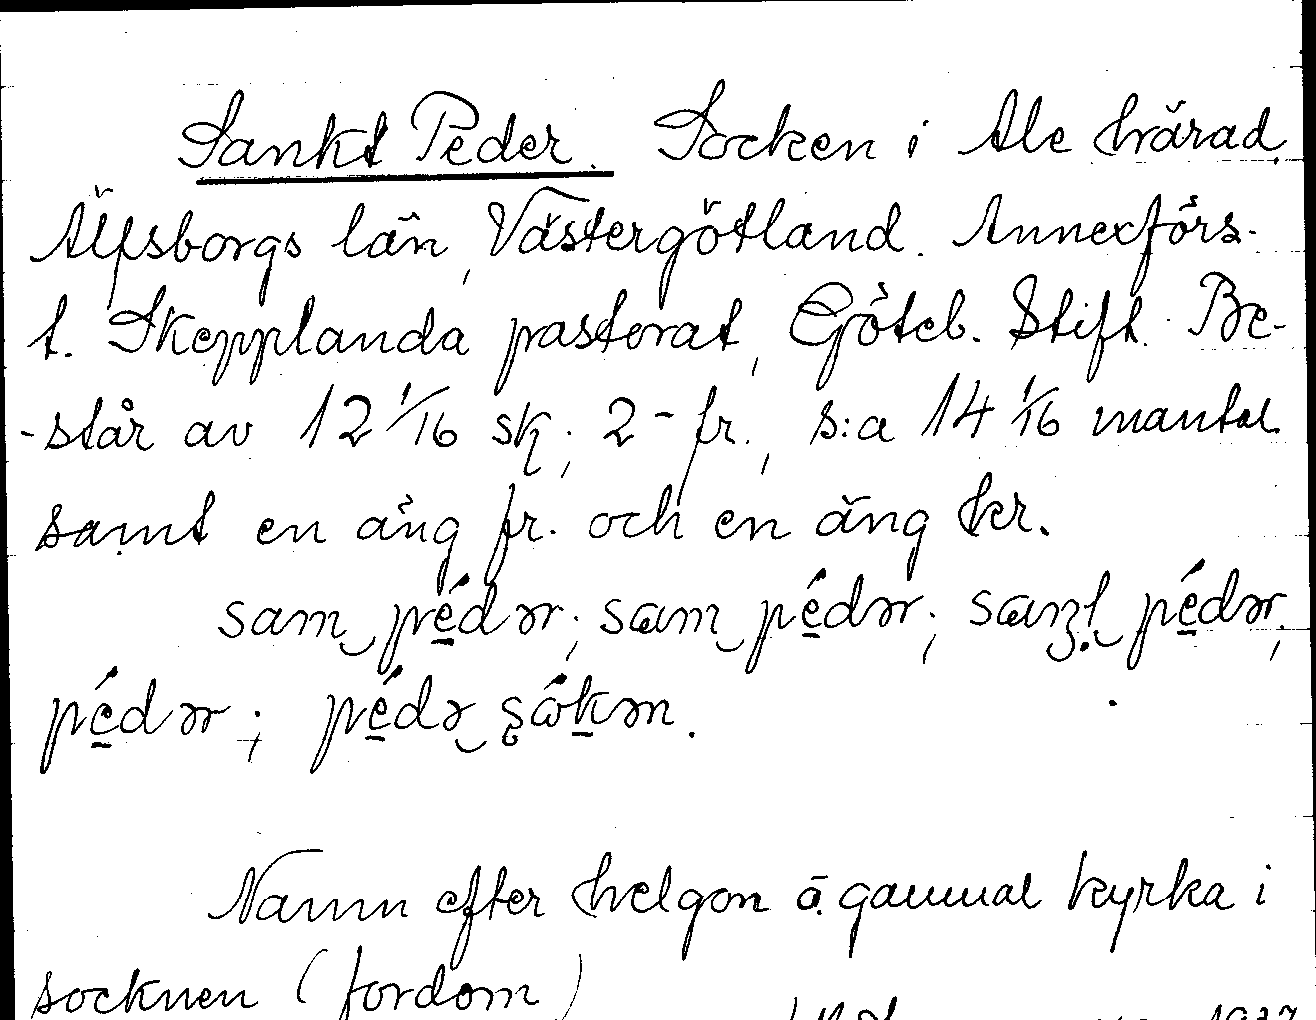 Sankt Peder. Socken i Ale härad
Älfsborgs län, Västergötland. Annexförs.
t. Skepplanda pastorat, Göteb. Stift. Be-
-står av 12 1/16 sk; 2 - fr., s:a 14 1/16 mantal
samt en äng fr. och en äng kr.
sam‿pédər; sam‿pédər; sant‿pédər;
pédər; pédə‿sɷ́kən.
Namn efter helgon å gammal kyrka i
socknen (fordom)